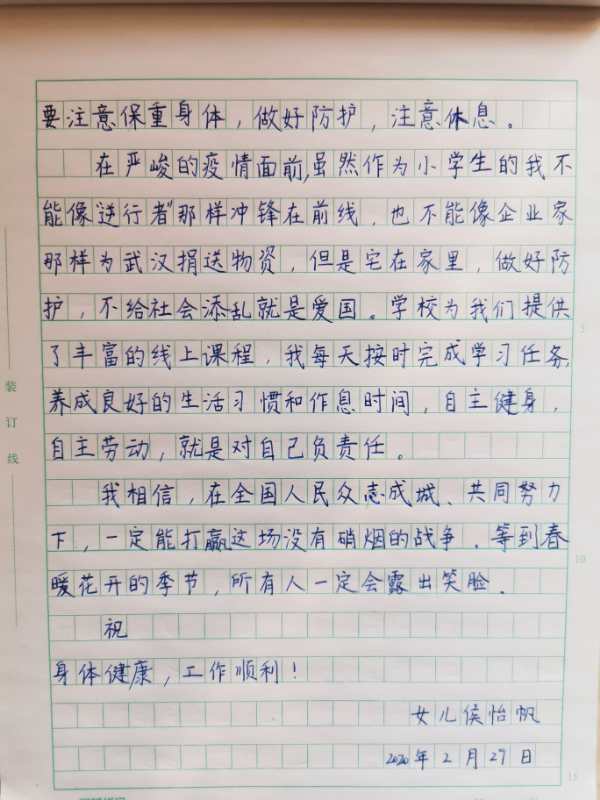 要注意保重身体，做好防护，注意休息。
在严峻的疫情面前，虽然作为小学生的我不
能像“逆行者”那样冲锋在前线，也不能像企业家
那样为武汉捐送物资，但是宅在家里，做好防
护，不给社会添乱就是爱国。学校为我们提供
了丰富的线上课程，我每天按时完成学习任务，
养成良好的生活习惯和作息时间，自主健身，
自主劳动，就是对自己负责任。
我相信，在全国人民众志成城、共同努力
下，一定能打赢这场没有硝烟的战争。等到春
暖花开的季节，所有人一定会露出笑脸。
祝
身体健康，工作顺利！
女儿侯怡帆
2020年2月27日
装订线
5
10
15